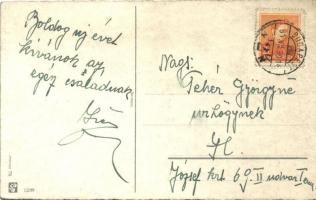 Boldog új évet
kívánok az
egész családnak
Nags:
Fehér Györgyné
úrhölgynek
József krt 69. II udvar I em